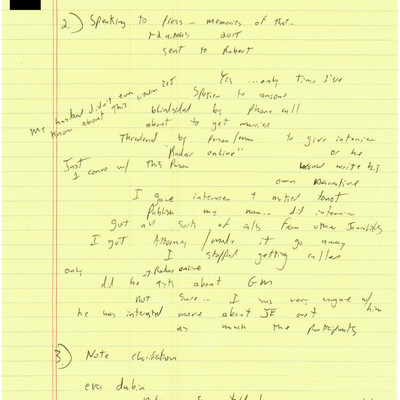 2.) Speaking to press... memories of that..
2015
sent to Robert
Yes ...only time I've
my husband didn't even know yet
Spoken to
know about this
blindsided by phone call
about to get married
Threatened by person/man to give interview
"Radar online" or he
Just 1 convo w/ this person would write his
own narrative
I gave interview + asked to not
Publish my name.. did interview
got all sorts of calls from other Journalists
I got Attorney / made it go away
I stopped getting calls
only Radar online
did he ask about GM
Not sure... I was very vague w/ him
he was interested more about JE not
as much the participants
3.) Note clarification
eva dubin